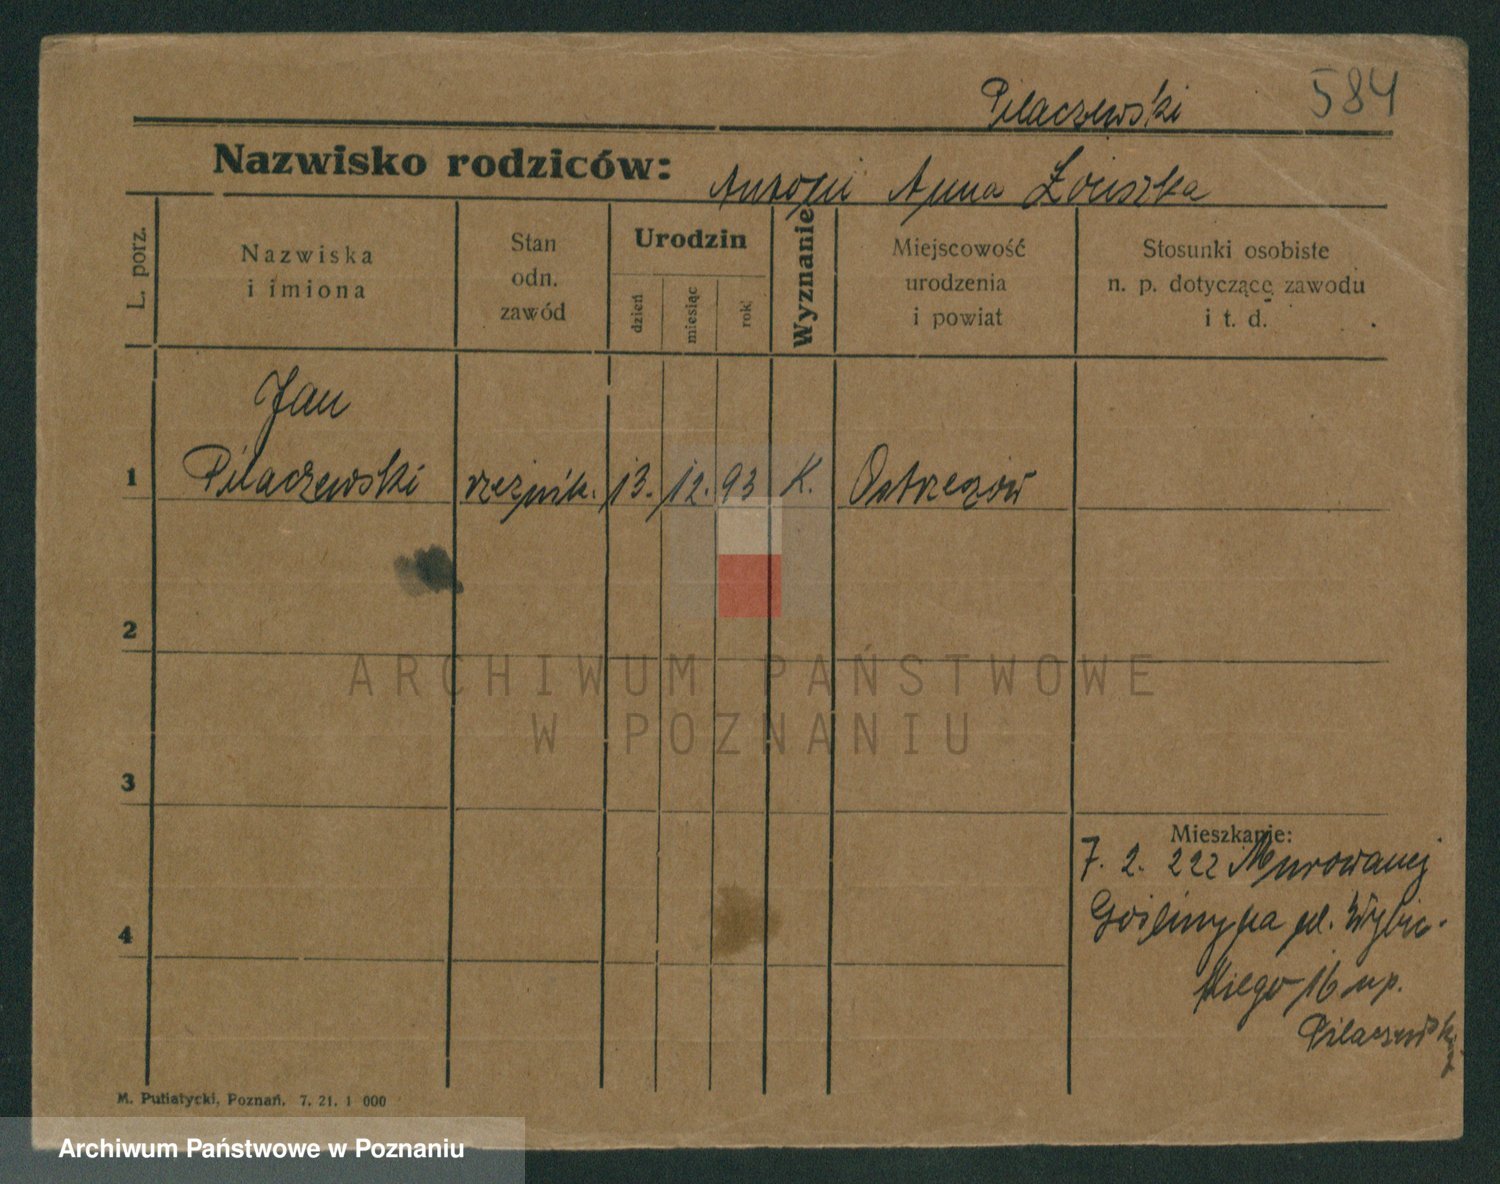 Pilaczewski 584
Nazwisko rodziców:
Antoni Anna
L. porz.
Nazwiska
i imiona
Stan
odn.
zawód
Urodzin
dzień
miesiąc
rok
Wyznanie
Miejscowość
urodzenia
i powiat
Stosunki osobiste
n. p. dotyczące zawodu
i t. d.
Jan
1 Pilaczewski rzeźnik. 13. 12. 93 K. Ostrzeszów
2
3
4
Mieszkanie:
7. 2. 22 z Murowanej
Gośliny na pl. Wybic-
kiego 16 u p.
Pilaczewsk
M. Putiatycki, Poznań. 7. 21. 1 000
ARCHIWUM PAŃSTWOWE
W POZNANIU
Archiwum Państwowe w Poznaniu